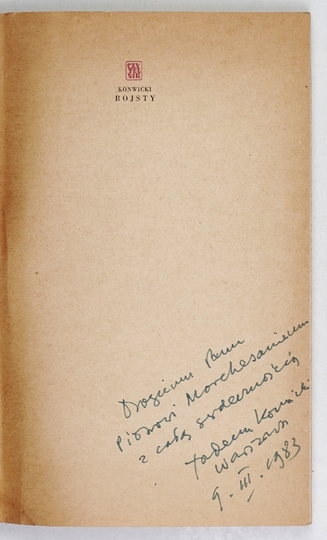 CZY
TEL
NIK
KONWICKI
ROJSTY
Drogiemu Panu
Piotrowi Marchesaniemu
z całą serdecznością
Tadeusz Konwicki
Warszawa
9. III. 1983